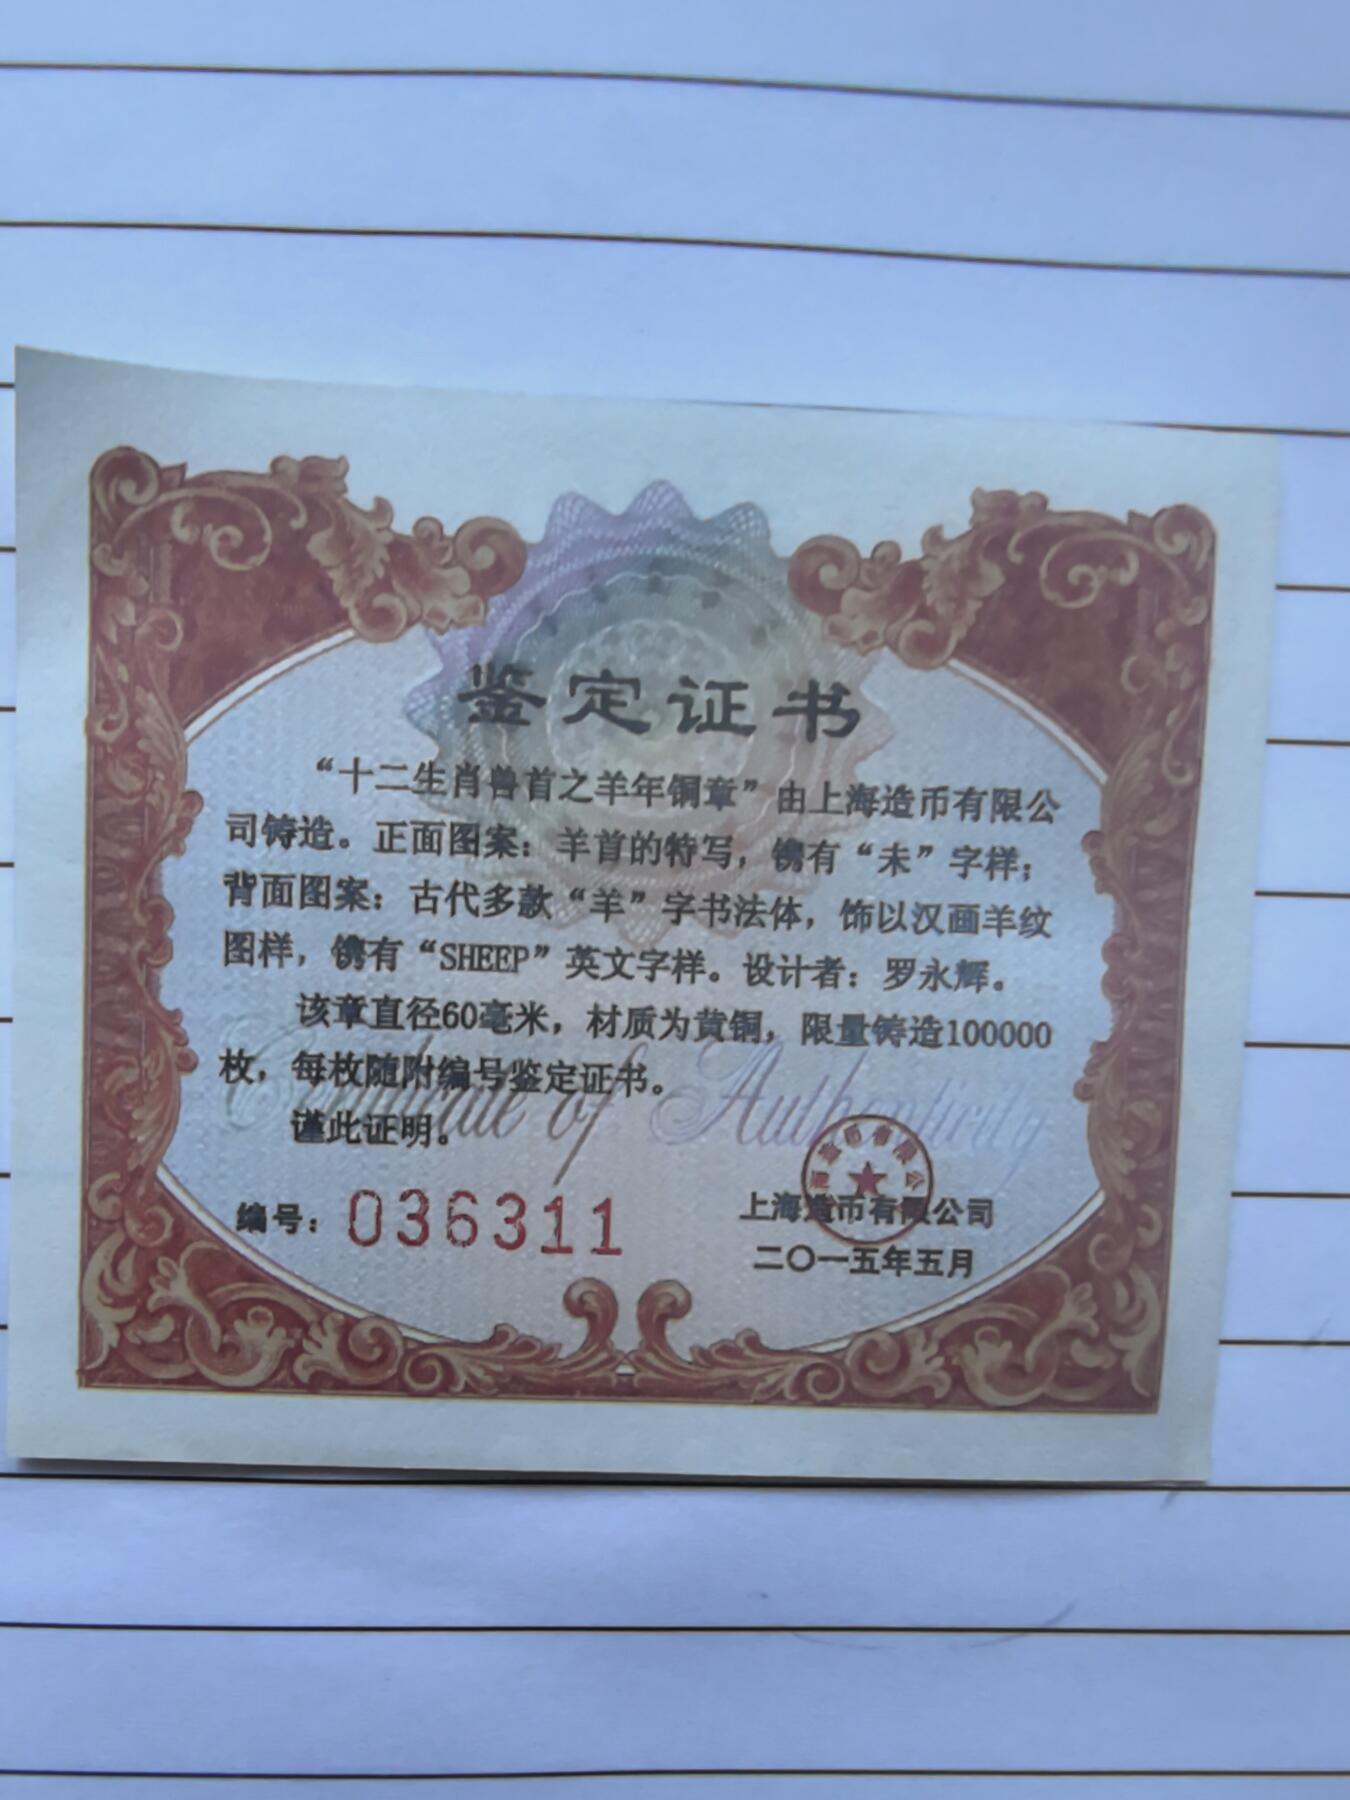 鉴定证书
“十二生肖兽首之羊年铜章”由上海造币有限公
司铸造。正面图案：羊首的特写，镌有“未”字样；
背面图案：古代多款“羊”字书法体，饰以汉画羊纹
图样，镌有“SHEEP”英文字样。设计者：罗永辉。
该章直径60毫米，材质为黄铜，限量铸造100000
枚，每枚随附编号鉴定证书。
Certificate of Authenticity
谨此证明。
编号：036311
上海造币有限公司
二〇一五年五月